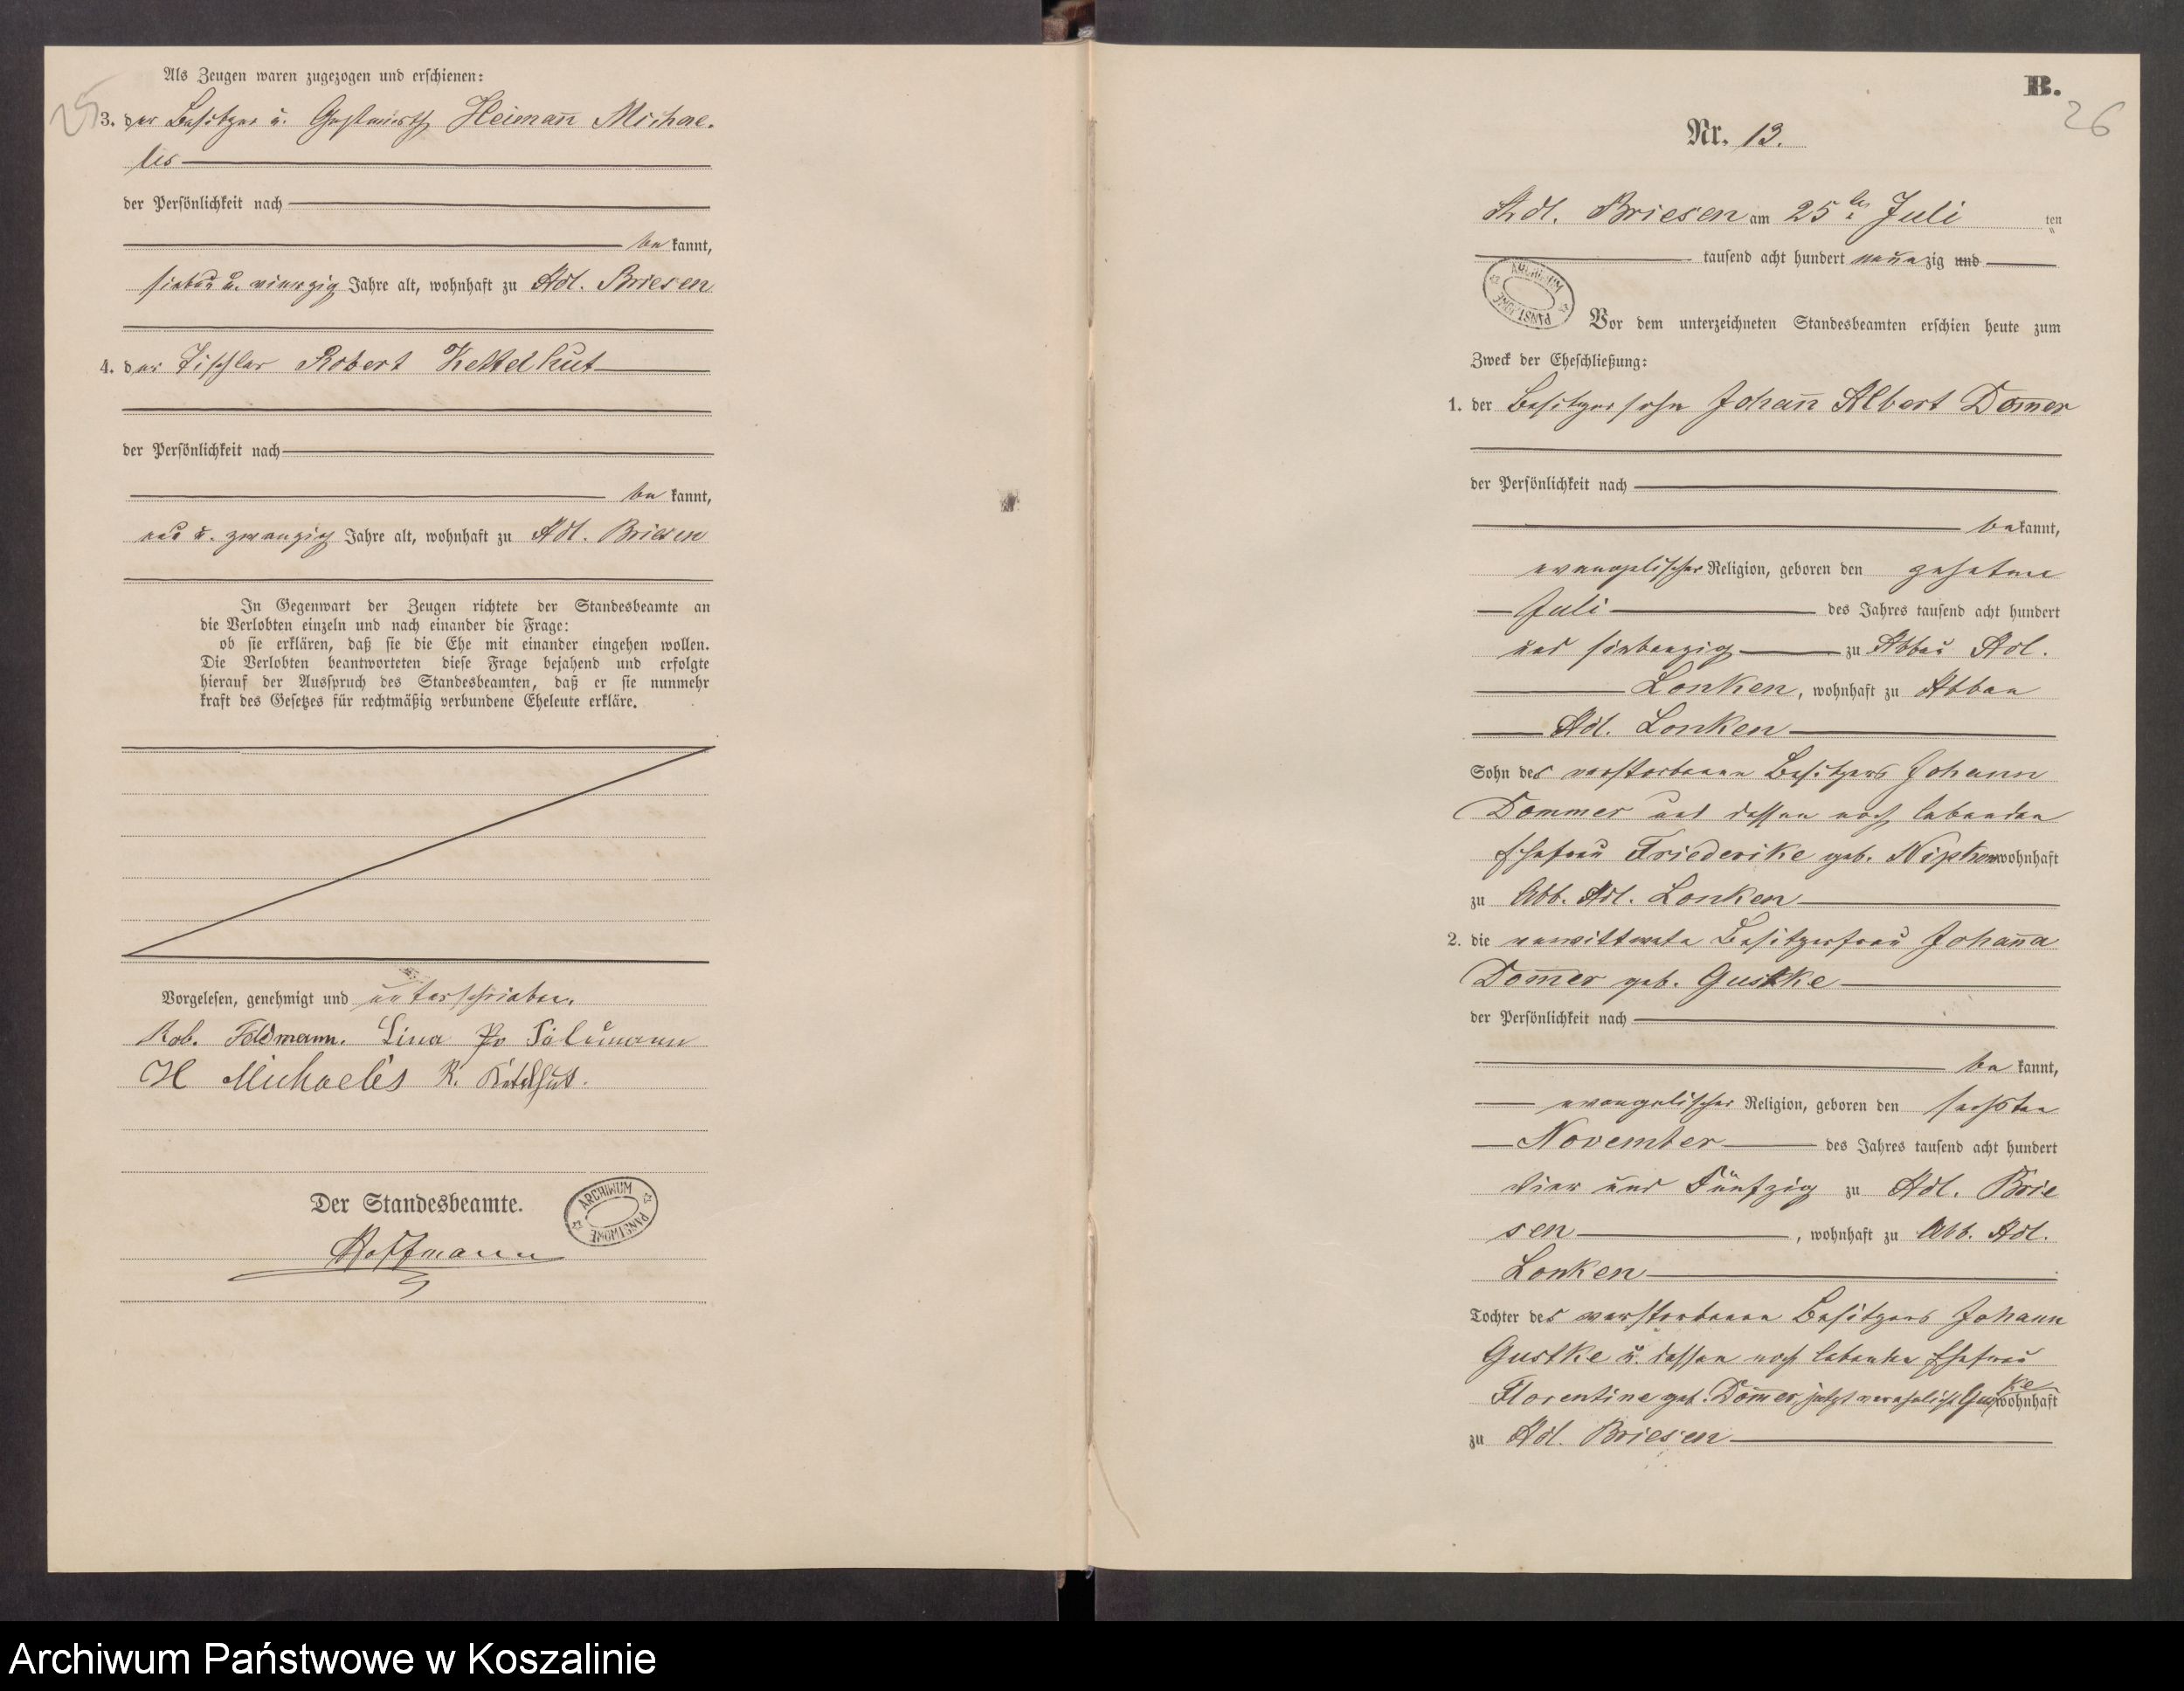 25
Als Zeugen waren zugezogen und erschienen:
3. der Besitzer u. Gastwirth Heimann̄ Michae-
lis
der Persönlichkeit nach
be kannt,
sieben u. vierzig Jahre alt, wohnhaft zu Adl. Briesen
4. der Tischler Robert Kettelhut
der Persönlichkeit nach
be kannt,
u. zwanzig Jahre alt, wohnhaft zu Adl. Briesen
In Gegenwart der Zeugen richtete der Standesbeamte an
die Verlobten einzeln und nach einander die Frage:
ob sie erklären, daß sie die Ehe mit einander eingehen wollen.
Die Verlobten beantworteten diese Frage bejahend und erfolgte
hierauf der Ausspruch des Standesbeamten, daß er sie nunmehr
kraft des Gesetzes für rechtmäßig verbundene Eheleute erkläre.
Vorgelesen, genehmigt und unterschrieben.
Rob. Feldmann. Lina
H Michaelis R. Kettelhut.
Der Standesbeamte.
Hoffmann
ARCHIWUM PAŃSTWOWE
B.
26
Nr. 13.
Adl. Briesen am 25ten Juli ten
tausend acht hundert neunzig und
ARCHIWUM PAŃSTWOWE
Vor dem unterzeichneten Standesbeamten erschien heute zum
Zweck der Eheschließung:
1. der Besitzersohn Johan̄ Albert Dom̄er
der Persönlichkeit nach
be kannt,
evangelischer Religion, geboren den zehnten
Juli des Jahres tausend acht hundert
und siebenzig zu Abbau Adl.
Lonken, wohnhaft zu Abbau
Adl. Lonken
Sohn des verstorbenen Besitzers Johann
Dommer und dessen noch lebenden
Ehefrau Friederike geb. Nipkow wohnhaft
zu Abb. Adl. Lonken
2. die verwittwete Besitzerfrau Johan̄a
Dom̄er geb. Gustke
der Persönlichkeit nach
be kannt,
evangelischer Religion, geboren den sechsten
November des Jahres tausend acht hundert
vier und Fünfzig zu Adl. Brie
sen, wohnhaft zu Abb. Adl.
Lonken
Tochter des verstorbenen Besitzers Johann
Gustke u. dessen noch lebenden Ehefrau
Florentine geb. Dom̄er, jetzt verehelicht wohnhaft
zu Adl. Briesen
Archiwum Państwowe w Koszalinie